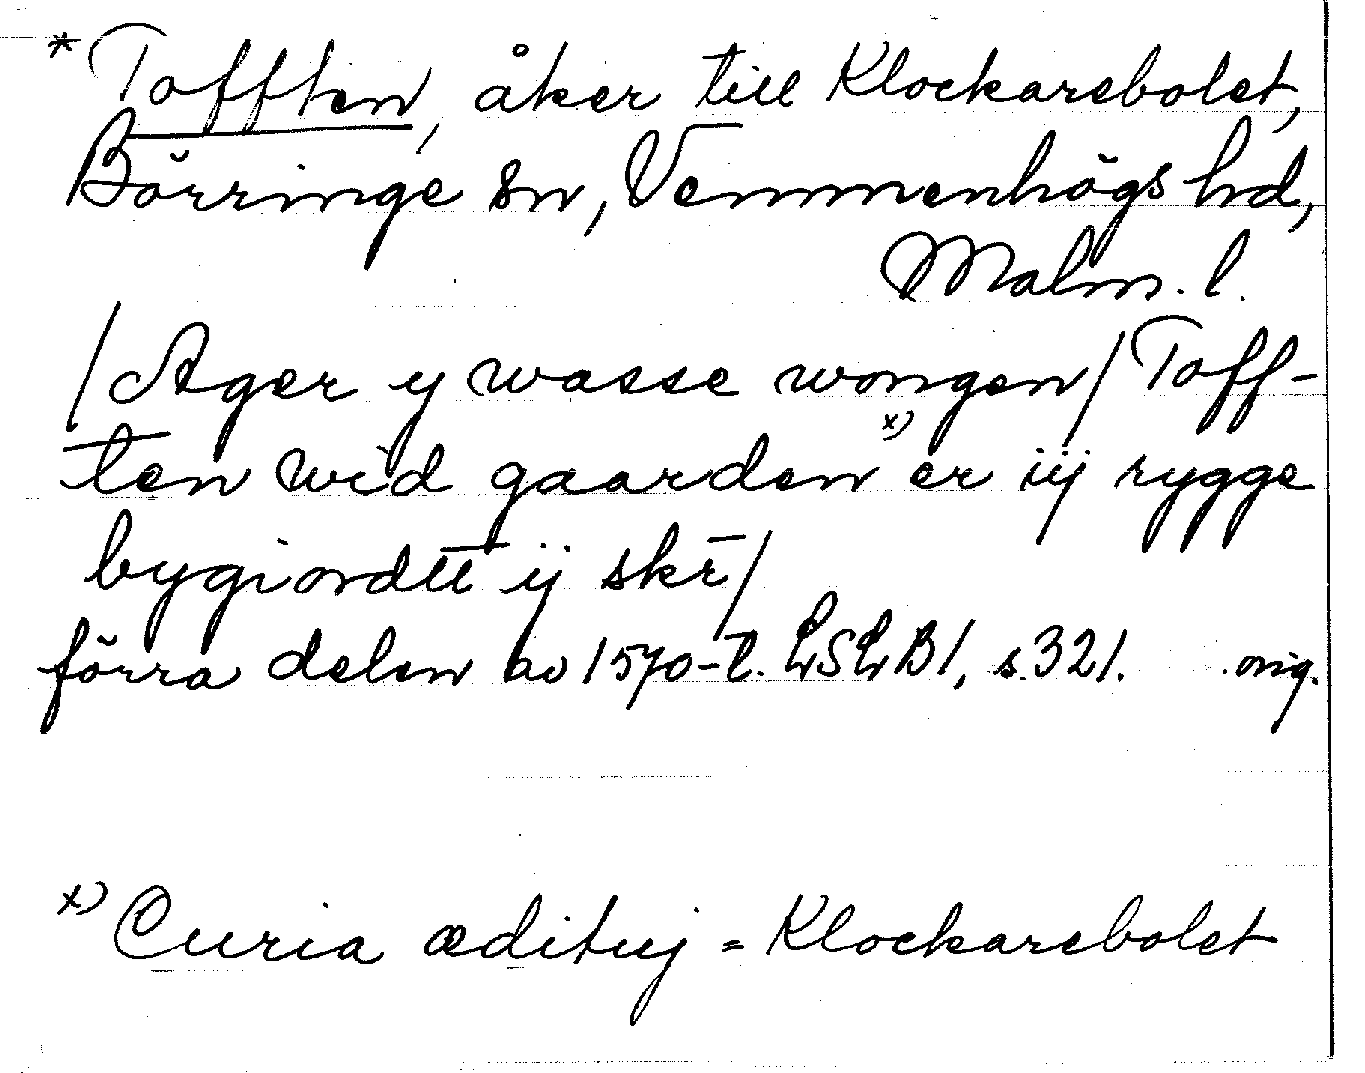 * Tofften, åker till Klockarebolet,
Börringe sn, Vemmenhögs hd,
Malm. l.
/Ager y wasse wongen/ Toff-
ten wid gaarden x) er iij rygge
bygiordtt ij skr̄/
förra delen av 1570-t. LSLB1, s. 321. orig.
x) Curia ædituj = Klockarebolet